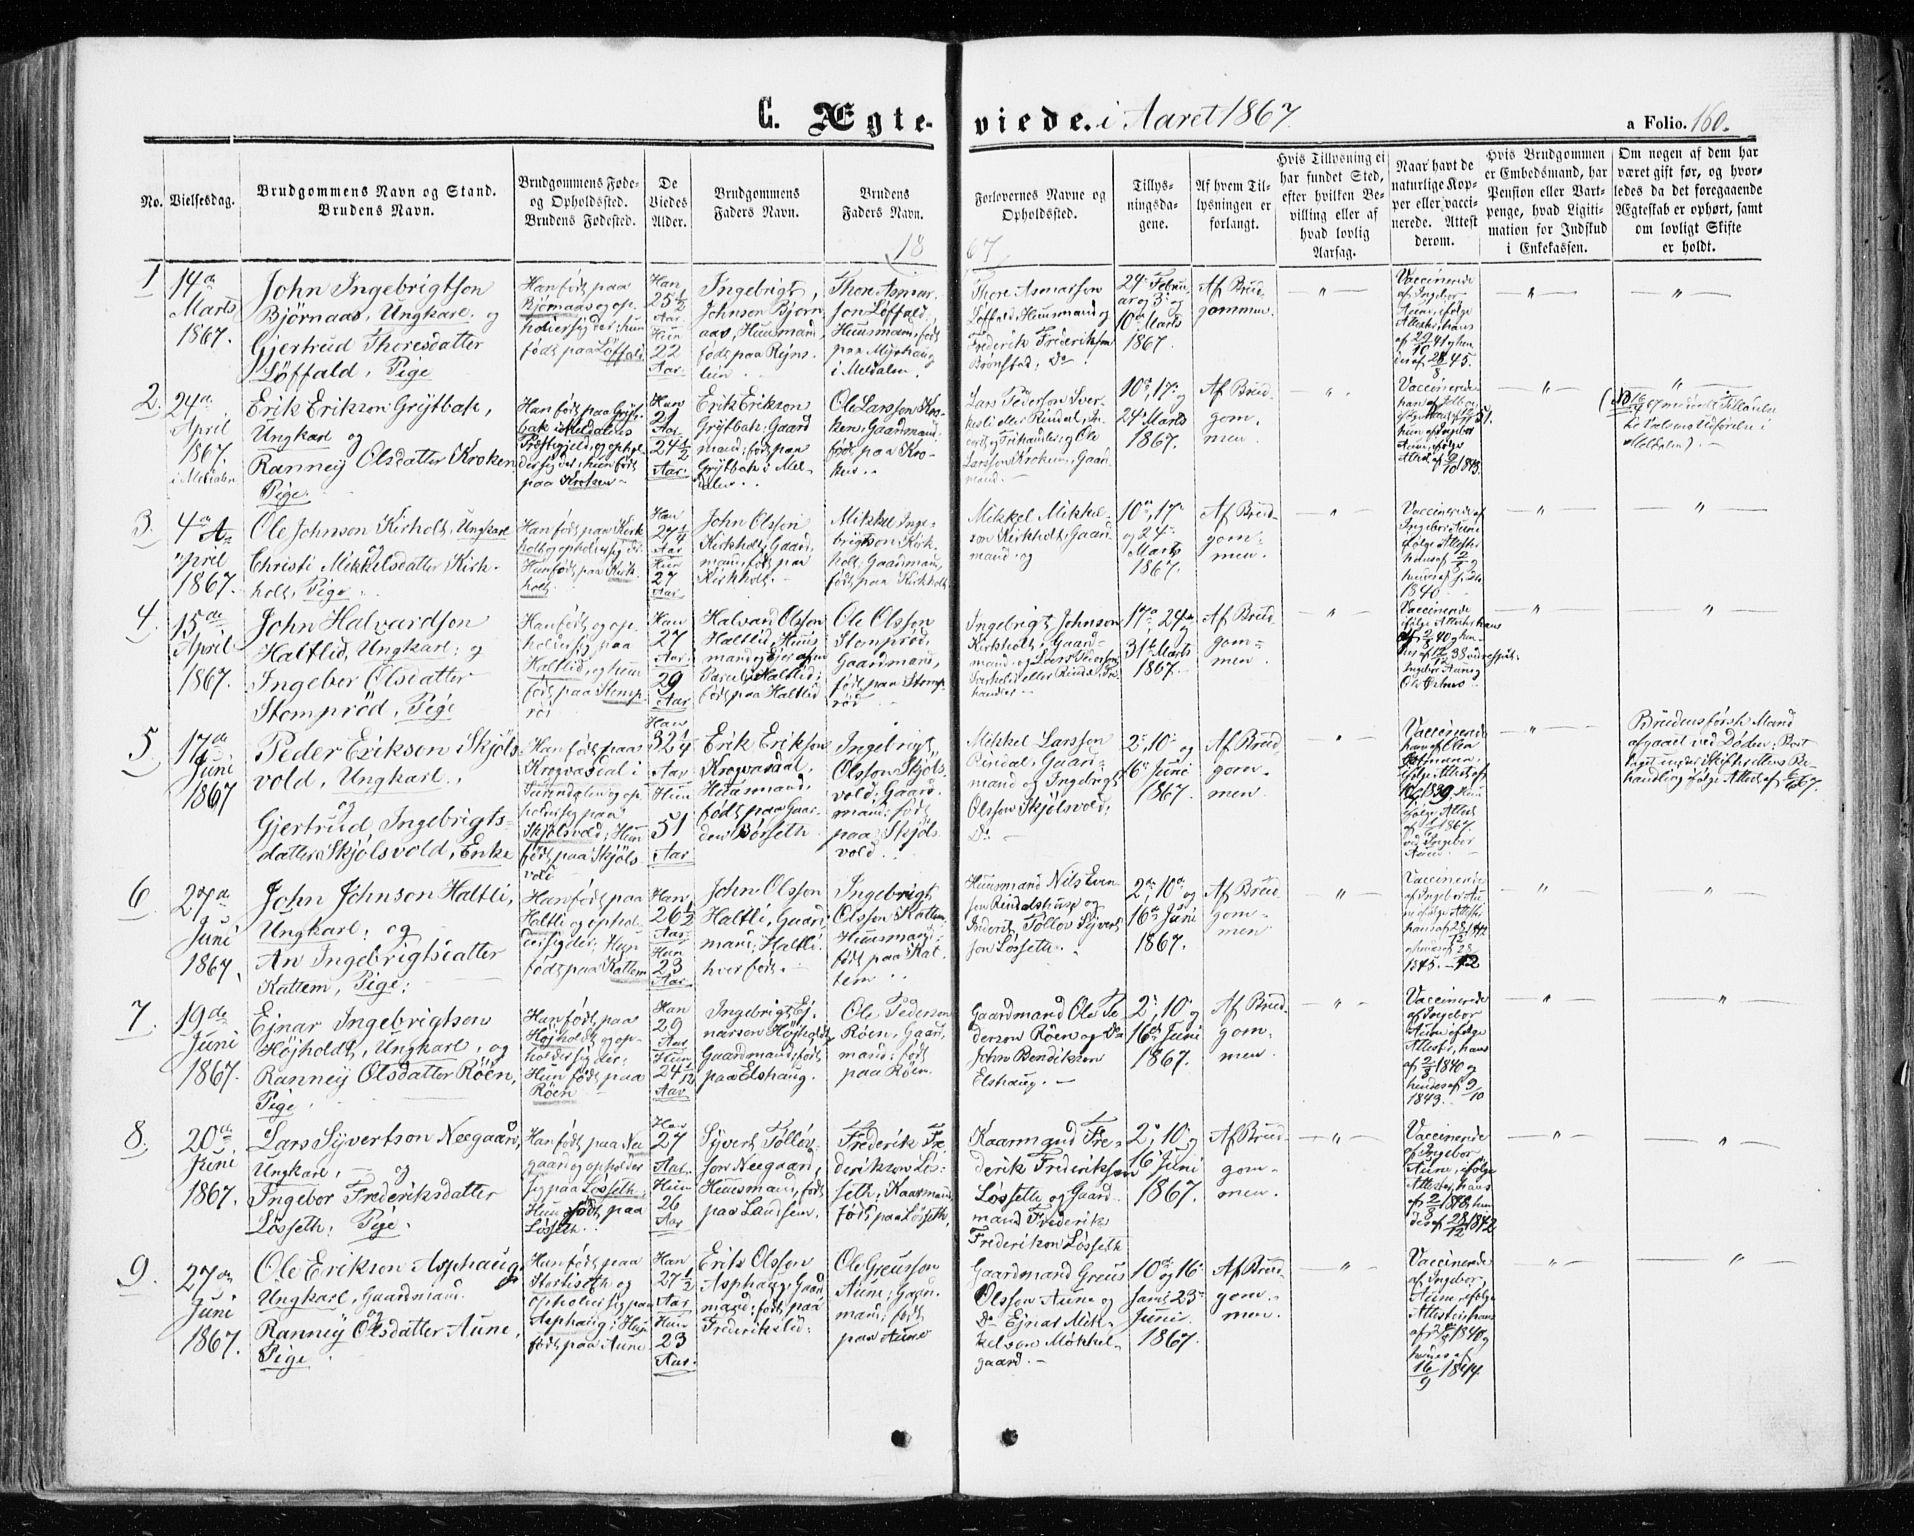 C. Ægte-viede. i Aaret 1867. a Folio. 160.
No.
Vielsesdag.
Brudgommens Navn og Stand.
Brudens Navn.
Brudgommens Føde-
og Opholdssted.
Brudens Fødested.
De
Viedes
Alder.
Brudgommens
Faders Navn.
Brudens
Faders Navn.
Forlovernes Navne og
Opholdssted.
Tillys-
ningsda-
gene.
Af hvem Til-
lysningen er
forlangt.
Hvis Tillysning ei
har fundet Sted,
efter hvilken Be-
villing eller af
hvad lovlig
Aarsag.
Naar havt de
naturlige Kop-
per eller vacci-
nerede. Attest
derom.
Hvis Brudgommen
er Embedsmand, har
Pension eller Vart-
penge, hvad Ligiti-
mation for Indskud
i Enkekassen.
Om nogen af dem har
været gift før, og hvor-
ledes da det foregaaende
Ægteskab er ophørt, samt
om lovligt Skifte
er holdt.
18
67
1
14de
Marts
1867.
John Ingebrigtson
Bjørnaas, Ungkarl, og
Gjertrud Thoresdatter
Løffald, Pige
Han født paa
Bjørnaas og op-
holder sig der; hun
født paa Løffald
Han
25 1/2
Aar
Hun
22
Aar
Ingebrigt
Johnson Bjørn
aas, Huusmand,
født paa
Thore Asmar-
son Løffald,
Huusmand, født
paa Myrhaug
i Meldalen.
Thore Asmarson
Løffald, Huusmand og
Frederik Frederikson
Brønstad, Do
24de Febru
ar og 3de og
10de Marts
1867.
Af Brud-
gommen
Vaccinerede
af Ingebor
Aune, ifølge
Attester, hans
2.
24de
April
1867.
i Meldalen
Erik Erikson Grytbak,
Ungkarl og
Ranney Olsdatter Kroken
Pige.
Han født paa Gryt-
bak i Meldalens
Præstegjeld, og ophol
der sig der; hun født
paa Kroken
Han
21
Aar
24 1/2
Aar
Erik Erikson
Grytbak, Gaard
mand; født paa
Grytbak i Mel-
dalen.
Ole Larsson Kro-
ken, Gaardmand
født paa Kro-
ken.
Larsson Kroken, Gaard-
mand.
10de, 17de og
24de Marts
1867.
Af Brud-
gom-
men.
3.
4de A-
pril
1867.
Ole Johnson Kirholt, Ungkarl
og
Christi Mikkelsdatter Kirk-
holt, Pige
Han født paa Kirk
holt og opholder sig der
Hun født paa Kirk-
holt
Han
27 1/4
Aar
Hun
27
Aar
John Olsson
Kirkholt, Gaard
mand, født paa
Kirkholt.
Mikkel Inge-
brigtson Kirk-
holt, Gaardmand,
født paa Kirkholt
Mikkel Mikkel-
son Kirkholt, Gaard
mand og
10de, 17de
og 24de
Marts
1867.
Af Brud-
gom-
men.
4.
15de
April
1867.
John Halvardson
Haltlid, Ungkarl; og
Ingeber Olsdatter
Stomprød, Pige
Han født og op-
holder sig paa
Haltlid, og hun
født paa Stomp-
rød
Han
27
Aar
29
Aar
Halvard Olsson
Haltlid, Huus
mand og Ejer af en
Parcel i Haltlid;
født paa Haltlid
Ole Olsson
Stomprød,
Gaardmand,
født paa Stomp-
rød
Ingebrigt Johnson
Kirkholt, Gaard-
mand og Lars Pederson
17de, 24de og
31te Marts
1867.
Af Brud
gom-
men.
5
17de
Juni
1867
Peder Erikson Skjøls-
vold, Ungkarl,
og
Gjertrud Ingebrigts-
datter Skjølsvold, Enke
Han født paa
Krogvasdal i
Surendalen og op-
holder sig paa
Skjølsvold; Hun
født paa Skjøls-
vold
Han
32 1/4
Aar
Hun
51
Aar
Erik Erikson
Krogvasdal,
Huusmand,
født paa Gaar-
den Børseth.
Ingebrigt
Olsson Skjøls-
vold; Gaard
mand; født
paa Skjøls-
vold.
Mikkel Larsson
Rindal, Gaard-
mand og Ingebrigt
Olsson Skjølsvold,
Do
2de, 10de og
16de Juni
1867.
Af Brud
gom-
men.
Brudens første Mand
afgaaet ved Døden; Boet
6
27de
Juni
1867.
John Johnson Haltli,
Ungkarl, og
An Ingebrigtsdatter
Kattem, Pige;
Han født paa
Haltli og ophol-
der sig der; Hun
født paa Kattem
Han
26 1/2
Aar
Hun
23
Aar
John Olsson
Haltli, Gaard
mand, Haltli
hver født.
Ingebrigt
Olsson Kattem
Huusmand;
født paa Kat-
tem
Huusmand Nils Even
son Rindalshusp og
Inderst Tollov Syverts
son Løsseth.
2de, 10de og
16de Juni
1867.
Af Brud
gom-
men
7
19de
Juni
1867.
Ejnar Ingebrigtson
Højholdt, Ungkarl, og
Ranney Olsdatter Røen,
Pige
Han født paa
Højholdt og op-
holder sig der;
Hun født paa
Røen
Han
29
Aar
Hun
24 1/12
Aar
Ingebrigt Ej-
narson Højholdt
Gaardmand; født
paa Elshaug.
Ole Pederson
Røen, Gaard
mand; født
paa Røen.
Gaardmand Ole Pe
derson Røen og Do
John Bendikson
Elshaug.
2de, 10de og
16de Juni
1867.
Af Brud
gom-
men.
Vaccinerede
af Ingebor
Aune ifølge
Attester, hans
af 2/8 1840 og
hendes af 9/10
1843.
8
20de
Juni
1867.
Lars Syvertson Neegaard,
Ungkarl, og
Ingebor Frederiksdatter
Løsseth; Pige.
Han født paa Nee
gaard og opholder
sig paa Løsseth;
Hun født paa
Løsseth.
Han
27
Aar
Hun
26
Aar
Syvert Tollov
son Neegaard,
Huusmand, født
paa Landsem.
Frederik Fre-
derikson Løs-
seth; Kaarmand
født paa Løsseth,
Kaarmand Fre-
derik Frederikson
Løsseth og Gaard-
mand Frederik
Frederikson Løsseth
2de, 10de og
16de Juni
1867.
Af Brud
gom-
men.
9.
27de
Juni
1867.
Ole Erikson Asphaug
Ungkarl, Gaardmand.
og
Ranney Olsdatter Aune,
Pige
Han født paa
Storliseth og
opholder sig paa
Asphaug; Hun
født paa Aune
Han
27 1/2
Aar
Hun
23
Aar
Erik Olsson
Asphaug; Gaard
mand; født paa
Frederikslid;
Ole Greusson
Aune; Gaard-
mand; født
paa Aune
Gaardmand Greus
Olsson Aune og
Do Ejnar Mik-
kelson Møkkel-
gaard.
10de og 16de
samt 23de
Juni
1867.
Af Brud-
gom-
men.
Vaccinerede
af Ingebor
Aune, ifølge
16/9 1844